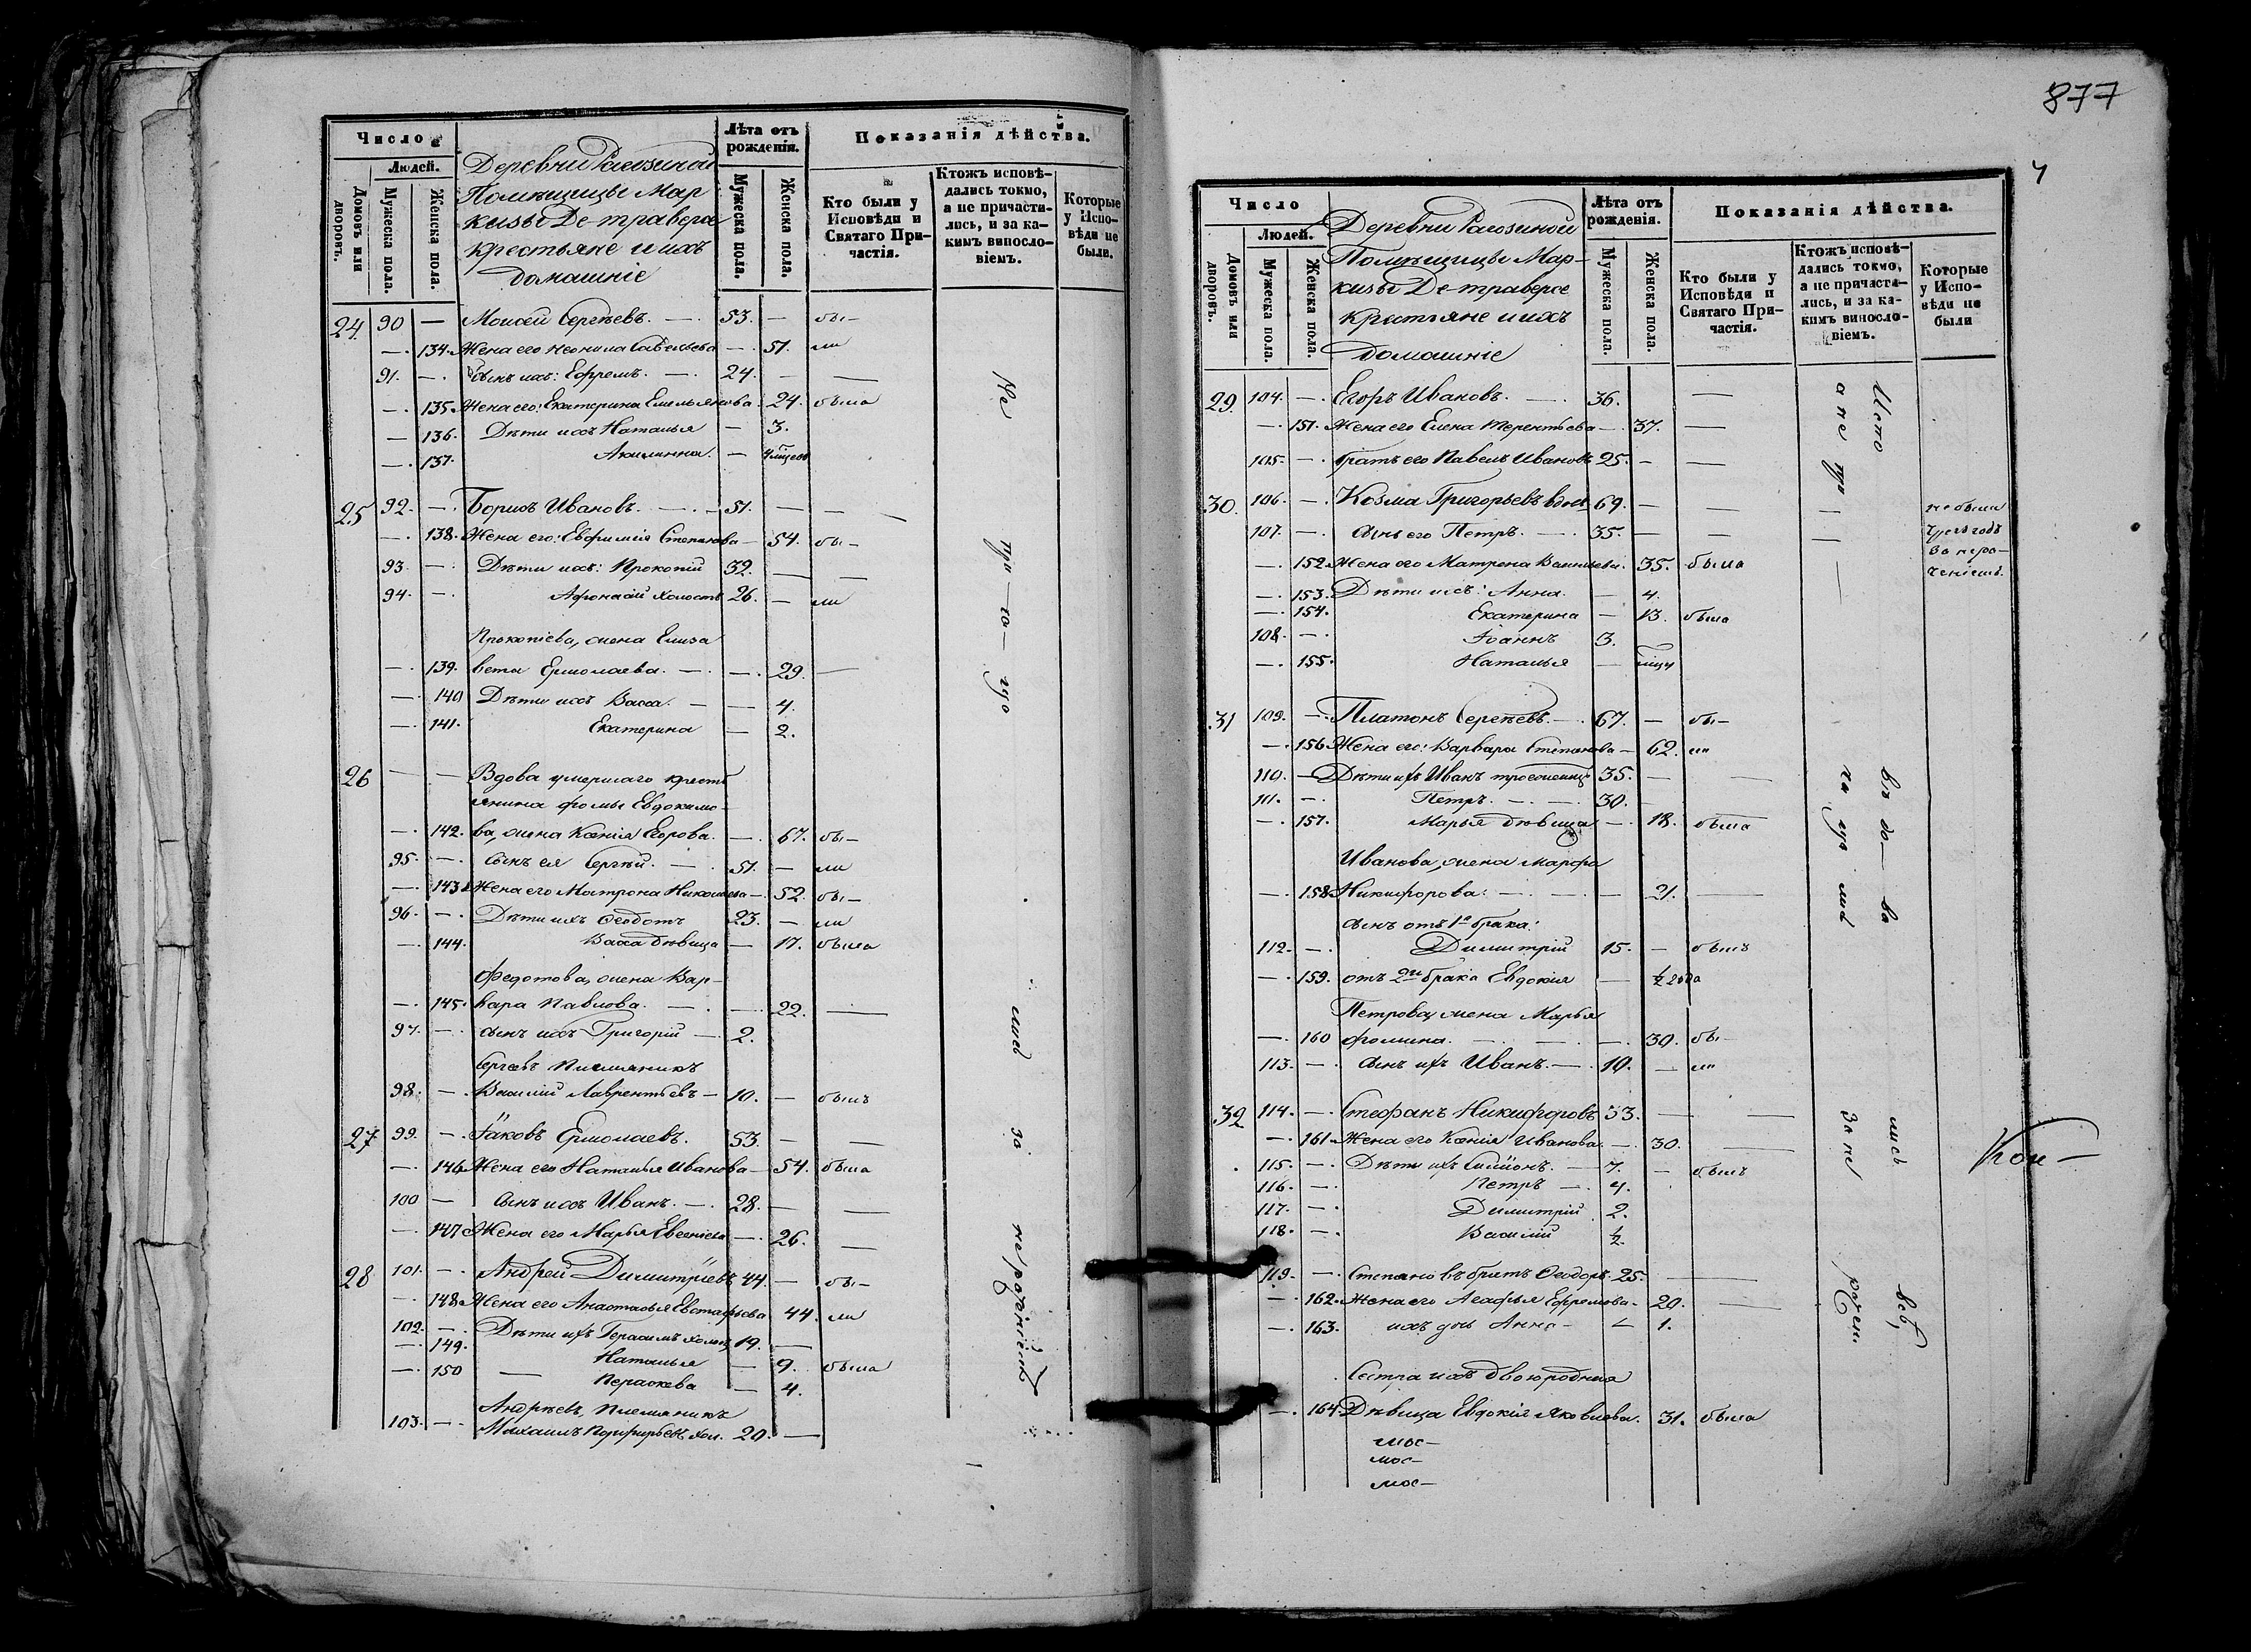 877
Число
Людей.
Домовъ или дворовъ.
Мужеска пола.
Женска пола.
Деревни Рагозиной
Помѣщицы Мар
кизы Де-траверсе
крестьяне и ихъ
домашніе
Лѣта отъ рожденія.
Мужеска пола.
Женска пола.
Показанія дѣйства.
Кто были у Исповѣди и Святаго Причастія.
Ктожъ исповѣдались токмо, а не причастились, и за какимъ винословіемъ.
Которые у Исповѣди не были.
24. 90 — Моисей Сергѣевъ. — 53. — бы-
— 134. Жена его Неонила Савельева — 51. ли
91. — Сынъ ихъ: Ефремъ. — 24. — —
— 135. Жена его: Екатерина Емельянова 24. была
— 136. Дѣти ихъ Наталья — 3.
— 137. Акилинна. —
25 92. — Борисъ Ивановъ. — 51. — —
— 138. Жена его: Евфимія Степанова — 54. бы-
93. — Дѣти ихъ: Прокопій 32. — —
94. — Афонасій холостъ 26. — ли
Прокопіева, жена Елиза
— 139. вета Ермолаева. — — 29. —
— 140 Дѣти ихъ Васса. — — 4.
— 141. Екатерина — 2.
26 — — Вдова умершаго кресть
янина Фомы Евдокимо-
— 142. ва, жена Ксенія Егорова. — 67. бы-
95. — Сынъ ея Сергѣй. — 51. — ли
— 143 Жена его Матрона Николаева — 52. бы-
96. — Дѣти ихъ Ѳеодотъ 23. — ли
— 144. Васса дѣвица — 17. была
Федотова, жена Вар-
— 145. вара Павлова. — — 22. —
97. — Сынъ ихъ Григорій — 2.
Сергѣевъ племянникъ
98. — Василій Лаврентьевъ — 10. — былъ
27 99. — Іаковъ Ермолаевъ. 53. — —
— 146 Жена его Наталья Иванова — 54. была
100 — Сынъ ихъ Иванъ. — 28. — —
— 147 Жена его Марья Евгеніева — 26. —
28 101. — Андрей Димитріевъ 44. — бы-
— 148 Жена его Анастасья Евстафьева 44. ли
102. — Дѣти ихъ Герасимъ холос 19. —
— 149. Наталья — 9. была
— 150 — Параскева — 4.
Андрѣевъ, племянникъ
103. — Михаилъ Порфирьевъ хол. 20. —
Не при-ча-щались за нераченіемъ
Число
Людей.
Домовъ или дворовъ.
Мужеска пола.
Женска пола.
Деревни Рагозиной
Помѣщицы Мар-
кизы Де-траверсе
крестьяне и ихъ
домашніе
Лѣта отъ рожденія.
Мужеска пола.
Женска пола.
Показанія дѣйства.
Кто были у Исповѣди и Святаго Причастія.
Ктожъ исповѣдались токмо, а не причастились, и за какимъ винословіемъ.
Которые у Исповѣди не были
29. 104. — Егоръ Ивановъ. — 36. —
— 151. Жена его Елена Терентьева — 37. —
105. — братъ его Павелъ Ивановъ 25. — —
30. 106. — Козма Григорьевъ вдов 69. — — —
107. — Сынъ его Петръ. — 35. — — —
— 152 Жена его Матрена Васильева. 35. была —
— 153. Дѣти ихъ: Анна. — 4.
— 154. Екатерина — 13. была
108. — Іоаннъ 3. —
— 155. Наталья —
не были
чрезъ годъ
за нера-
ченіемъ.
31 109. — Платонъ Сергѣевъ. — 67. — бы-
— 156 Жена его: Варвара Степанова — 62. ли
110. — Дѣти ихъ Иванъ 35. — —
111. — Петръ. — — 30. —
— 157. Марья дѣвица — 18. была
Иванова, жена Марфа
— 158 Никифорова: — — 21. —
Сынъ отъ 1го брака:
112. — Димитрій 15. — былъ
— 159. отъ 2го брака Евдокія — ½ года
Петрова, жена Марья
— 160 Фомина. — — — 30. бы-
113. — Сынъ ихъ Иванъ. — 10. — ли
32 114. — Стефанъ Никифоровъ 33. — —
— 161 Жена его Ксенія Иванова. — 30. —
115. — Дѣти ихъ Симіонъ. — 7. — былъ
116. — Петръ — 4.
117. — Димитрій 2.
118. — Василій ½
119. — Степановъ братъ Ѳеодоръ 25. — —
— 162. Жена его Агафья Ефремова — 20. —
— 163. ихъ дочь Анна — — 1.
Сестра ихъ двоюродная
— 164 Дѣвица Евдокія Яковлева. 31. была
Испо-вѣ-да-лись все,
а не при-ча-щались за нерачен.